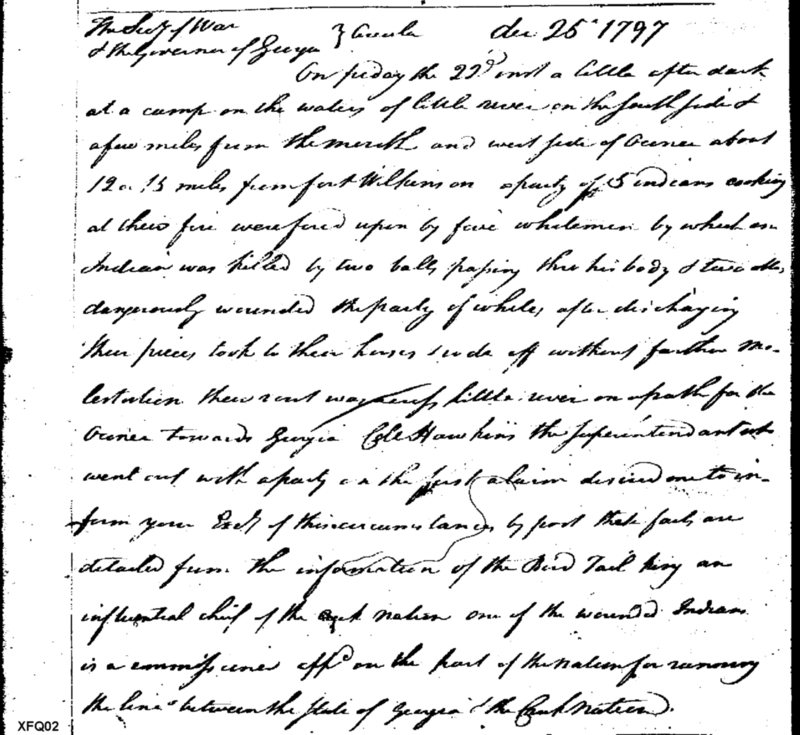 The Secy of War
& the Governor of Georgia } Circular Dec 25th 1797
On friday the 22d inst a little after dark
at a camp on the waters of little river on the South side &
a few miles from the mouth and west side of Oconee about
12 or 15 miles from fort Wilkinson a party of 5 indians cooking
at their fire were fired upon by five whitemen by which one
Indian was killed by two balls passing thro his body & two others
dangerously wounded the party of whites after discharging
their pieces took to their horses & rode off without further mo-
lestation their rout was across little river on a path for the
Oconee towards Georgia Colo Hawkins the Superintendant who
went out with a party on the first alarm desired me to in-
form your Excy of this circumstance by post these facts are
detailed from the information of the Bird Tail King an
influential chief of the Creek nation one of the wounded Indians
is a commissioner appd on the part of the nation for running
the line between the State of Georgia & the Creek Nation.
XFQ02